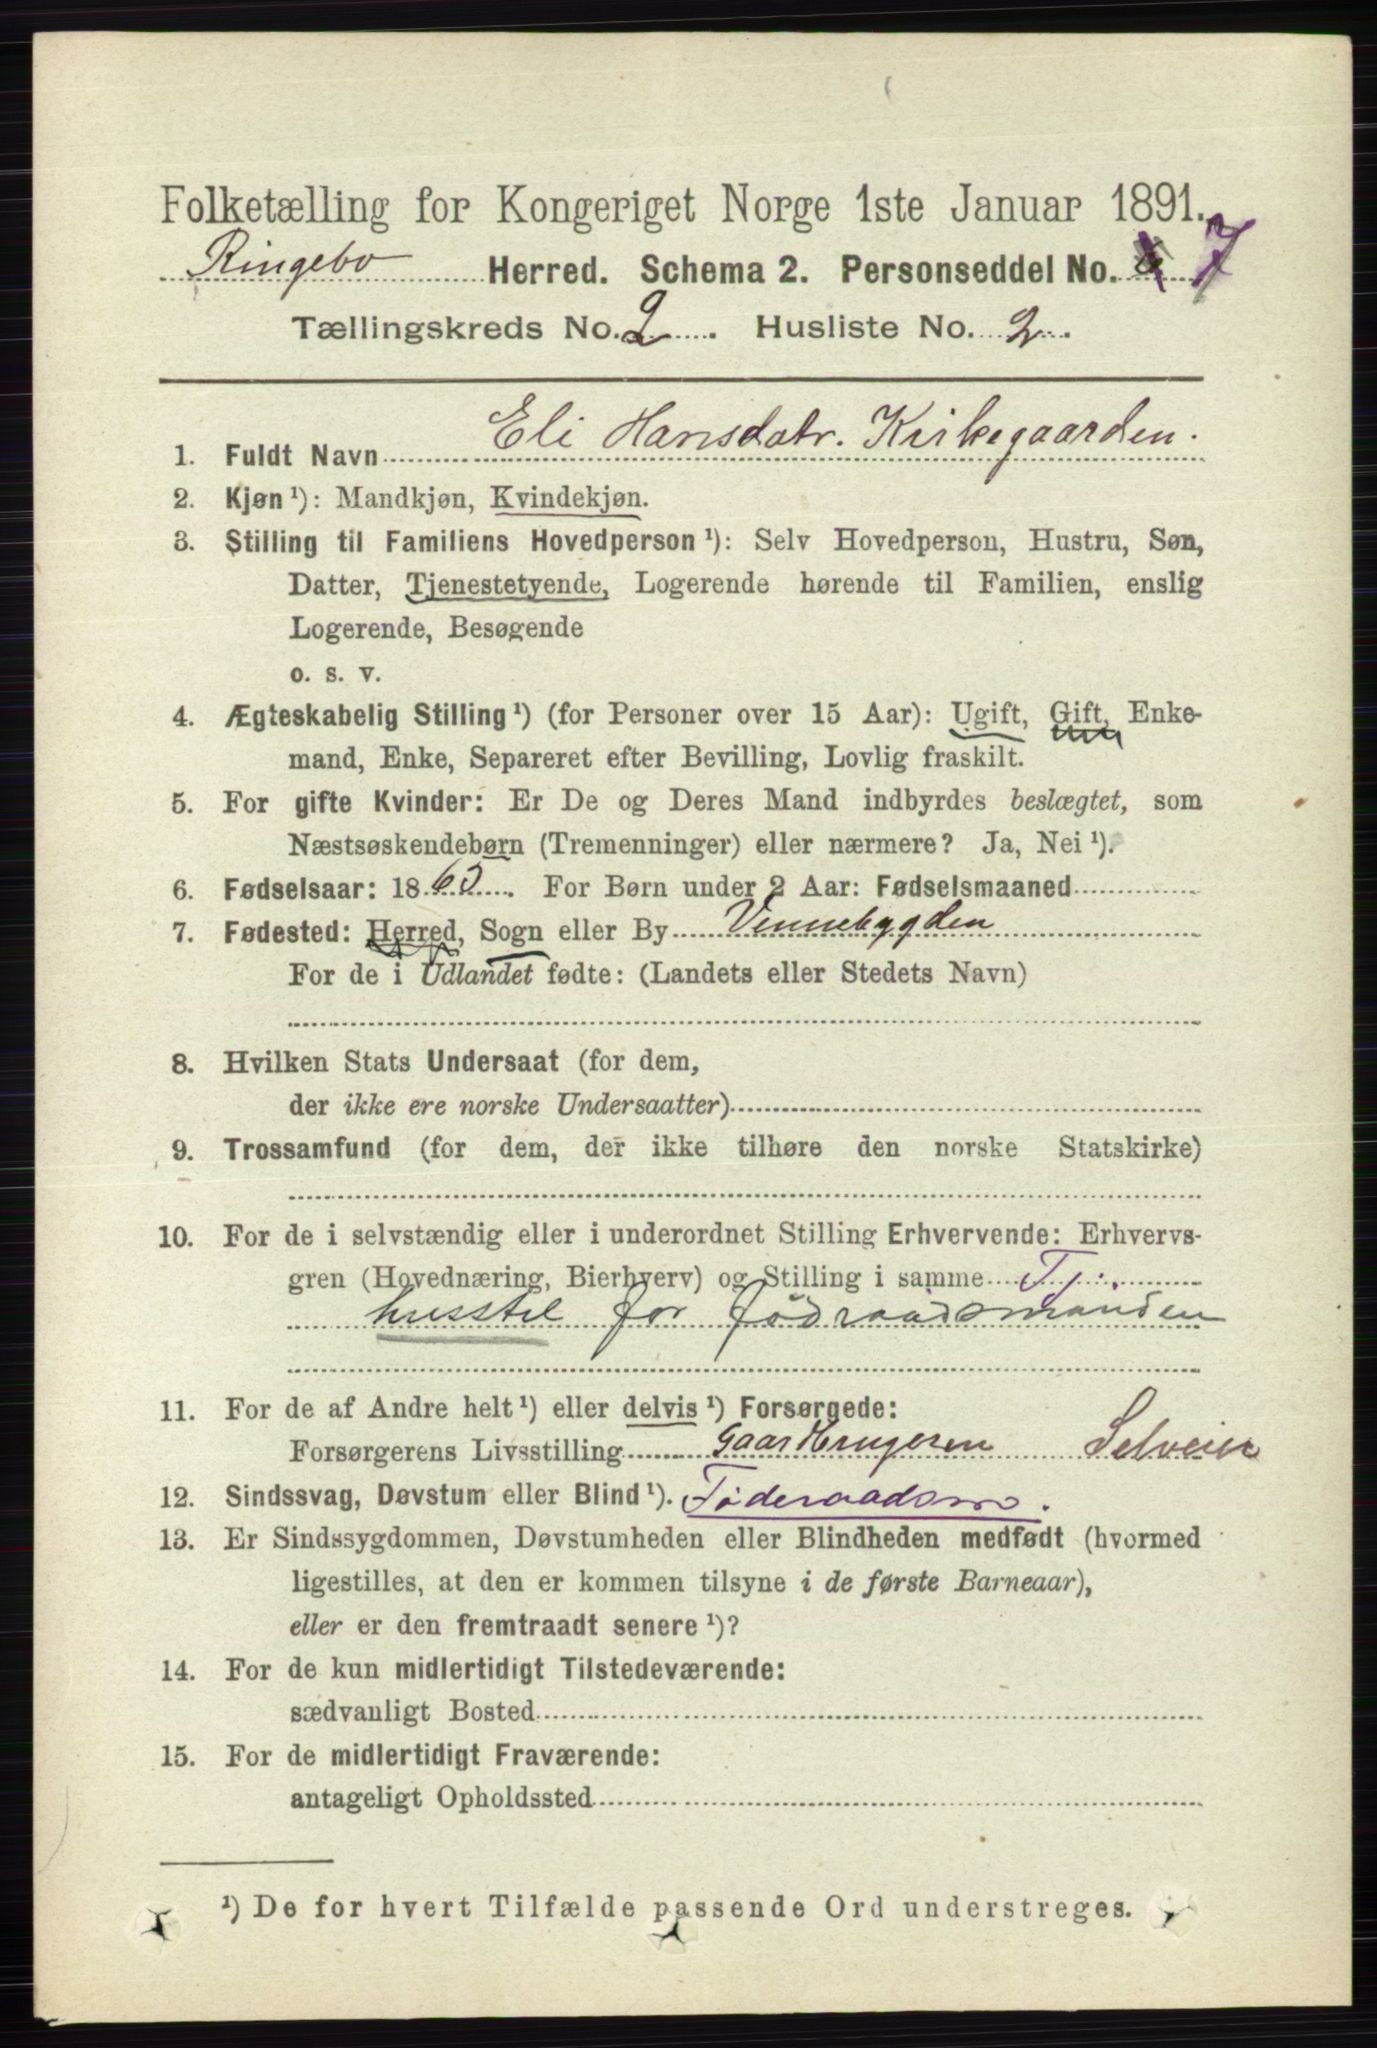 Folketælling for Kongeriget Norge 1ste Januar 1891.
Ringebo Herred. Schema 2. Personseddel No. 7
Tællingskreds No. 2. Husliste No. 2.
1. Fuldt Navn Eli Hansdatr. Kirkegaarden.
2. Kjøn ¹): Mandkjøn, Kvindekjøn.
3. Stilling til Familiens Hovedperson ¹): Selv Hovedperson, Hustru, Søn,
Datter, Tjenestetyende, Logerende hørende til Familien, enslig
Logerende, Besøgende
o. s. v.
4. Ægteskabelig Stilling ¹) (for Personer over 15 Aar): Ugift, Gift, Enke-
mand, Enke, Separeret efter Bevilling, Lovlig fraskilt.
5. For gifte Kvinder: Er De og Deres Mand indbyrdes beslægtet, som
Næstsøskendebørn (Tremenninger) eller nærmere? Ja, Nei ¹).
6. Fødselsaar: 1865. For Børn under 2 Aar: Fødselsmaaned
7. Fødested: Herred, Sogn eller By Vennebygden
For de i Udlandet fødte: (Landets eller Stedets Navn)
8. Hvilken Stats Undersaat (for dem,
der ikke ere norske Undersaatter)
9. Trossamfund (for dem, der ikke tilhøre den norske Statskirke)
10. For de i selvstændig eller i underordnet Stilling Erhvervende: Erhvervs-
gren (Hovednæring, Bierhverv) og Stilling i samme Tj.
husstel for fødraadsmanden
11. For de af Andre helt ¹) eller delvis ¹) Forsørgede:
Forsørgerens Livsstilling Gaardbrugeren Selveier
12. Sindssvag, Døvstum eller Blind ¹). Føderaadsm.
13. Er Sindssygdommen, Døvstumheden eller Blindheden medfødt (hvormed
ligestilles, at den er kommen tilsyne i de første Barneaar),
eller er den fremtraadt senere ¹)?
14. For de kun midlertidigt Tilstedeværende:
sædvanligt Bosted
15. For de midlertidigt Fraværende:
antageligt Opholdssted
¹) De for hvert Tilfælde passende Ord understreges.